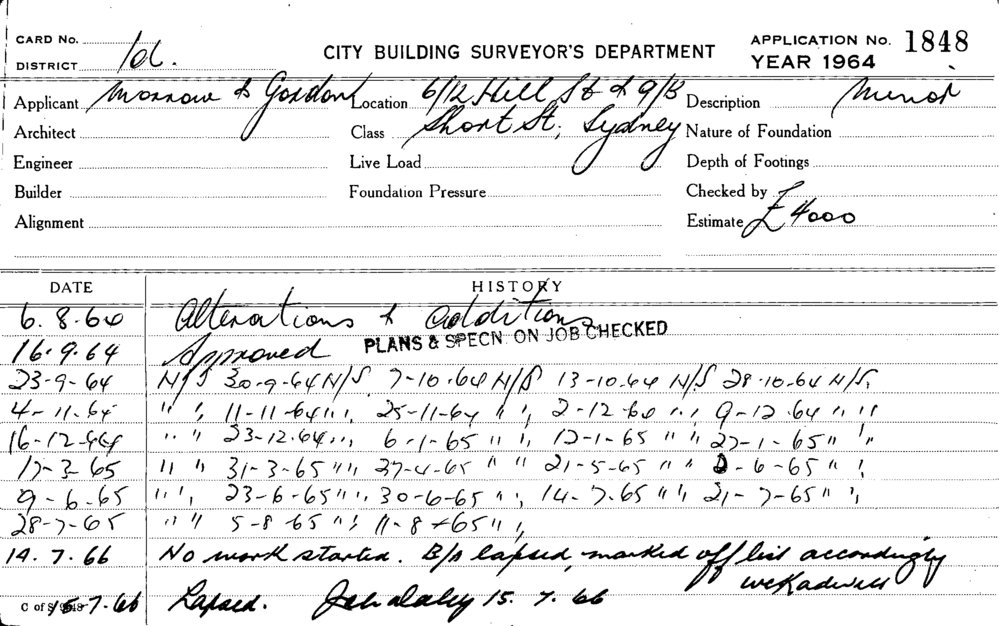 CARD No.
DISTRICT Id.
CITY BUILDING SURVEYOR'S DEPARTMENT
APPLICATION No. 1848
YEAR 1964
Applicant Morrow & Gordon Location 6/12 Hill St & 9/13 Description Minor
Architect Class Short St, Sydney Nature of Foundation
Engineer Live Load Depth of Footings
Builder Foundation Pressure Checked by
Alignment Estimate £4000
DATE HISTORY
6.8.64 Alterations & additions
16.9.64 Approved PLANS & SPECN. ON JOB CHECKED
23-9-64 N/S 30-9-64 N/S 7-10-64 N/S 13-10-64 N/S 28-10-64 N/S,
4-11-64 " ", 11-11-64 " ", 25-11-64 " ", 2-12-64 " ", 9-12-64 " "
16-12-64 " " 23-12-64 " ", 6-1-65 " ", 12-1-65 " " 27-1-65 " ",
17-3-65 " " 31-3-65 " " 27-4-65 " " 21-5-65 " " 2-6-65 " ",
9-6-65 " ", 23-6-65 " ", 30-6-65 " ", 14-7-65 " ", 21-7-65 " ",
28-7-65 " " 5-8-65 " ", 11-8-65 " ",
14.7.66 No work started. B/A lapsed, marked off list accordingly
15.7.66 Lapsed. John Daley 15.7.66